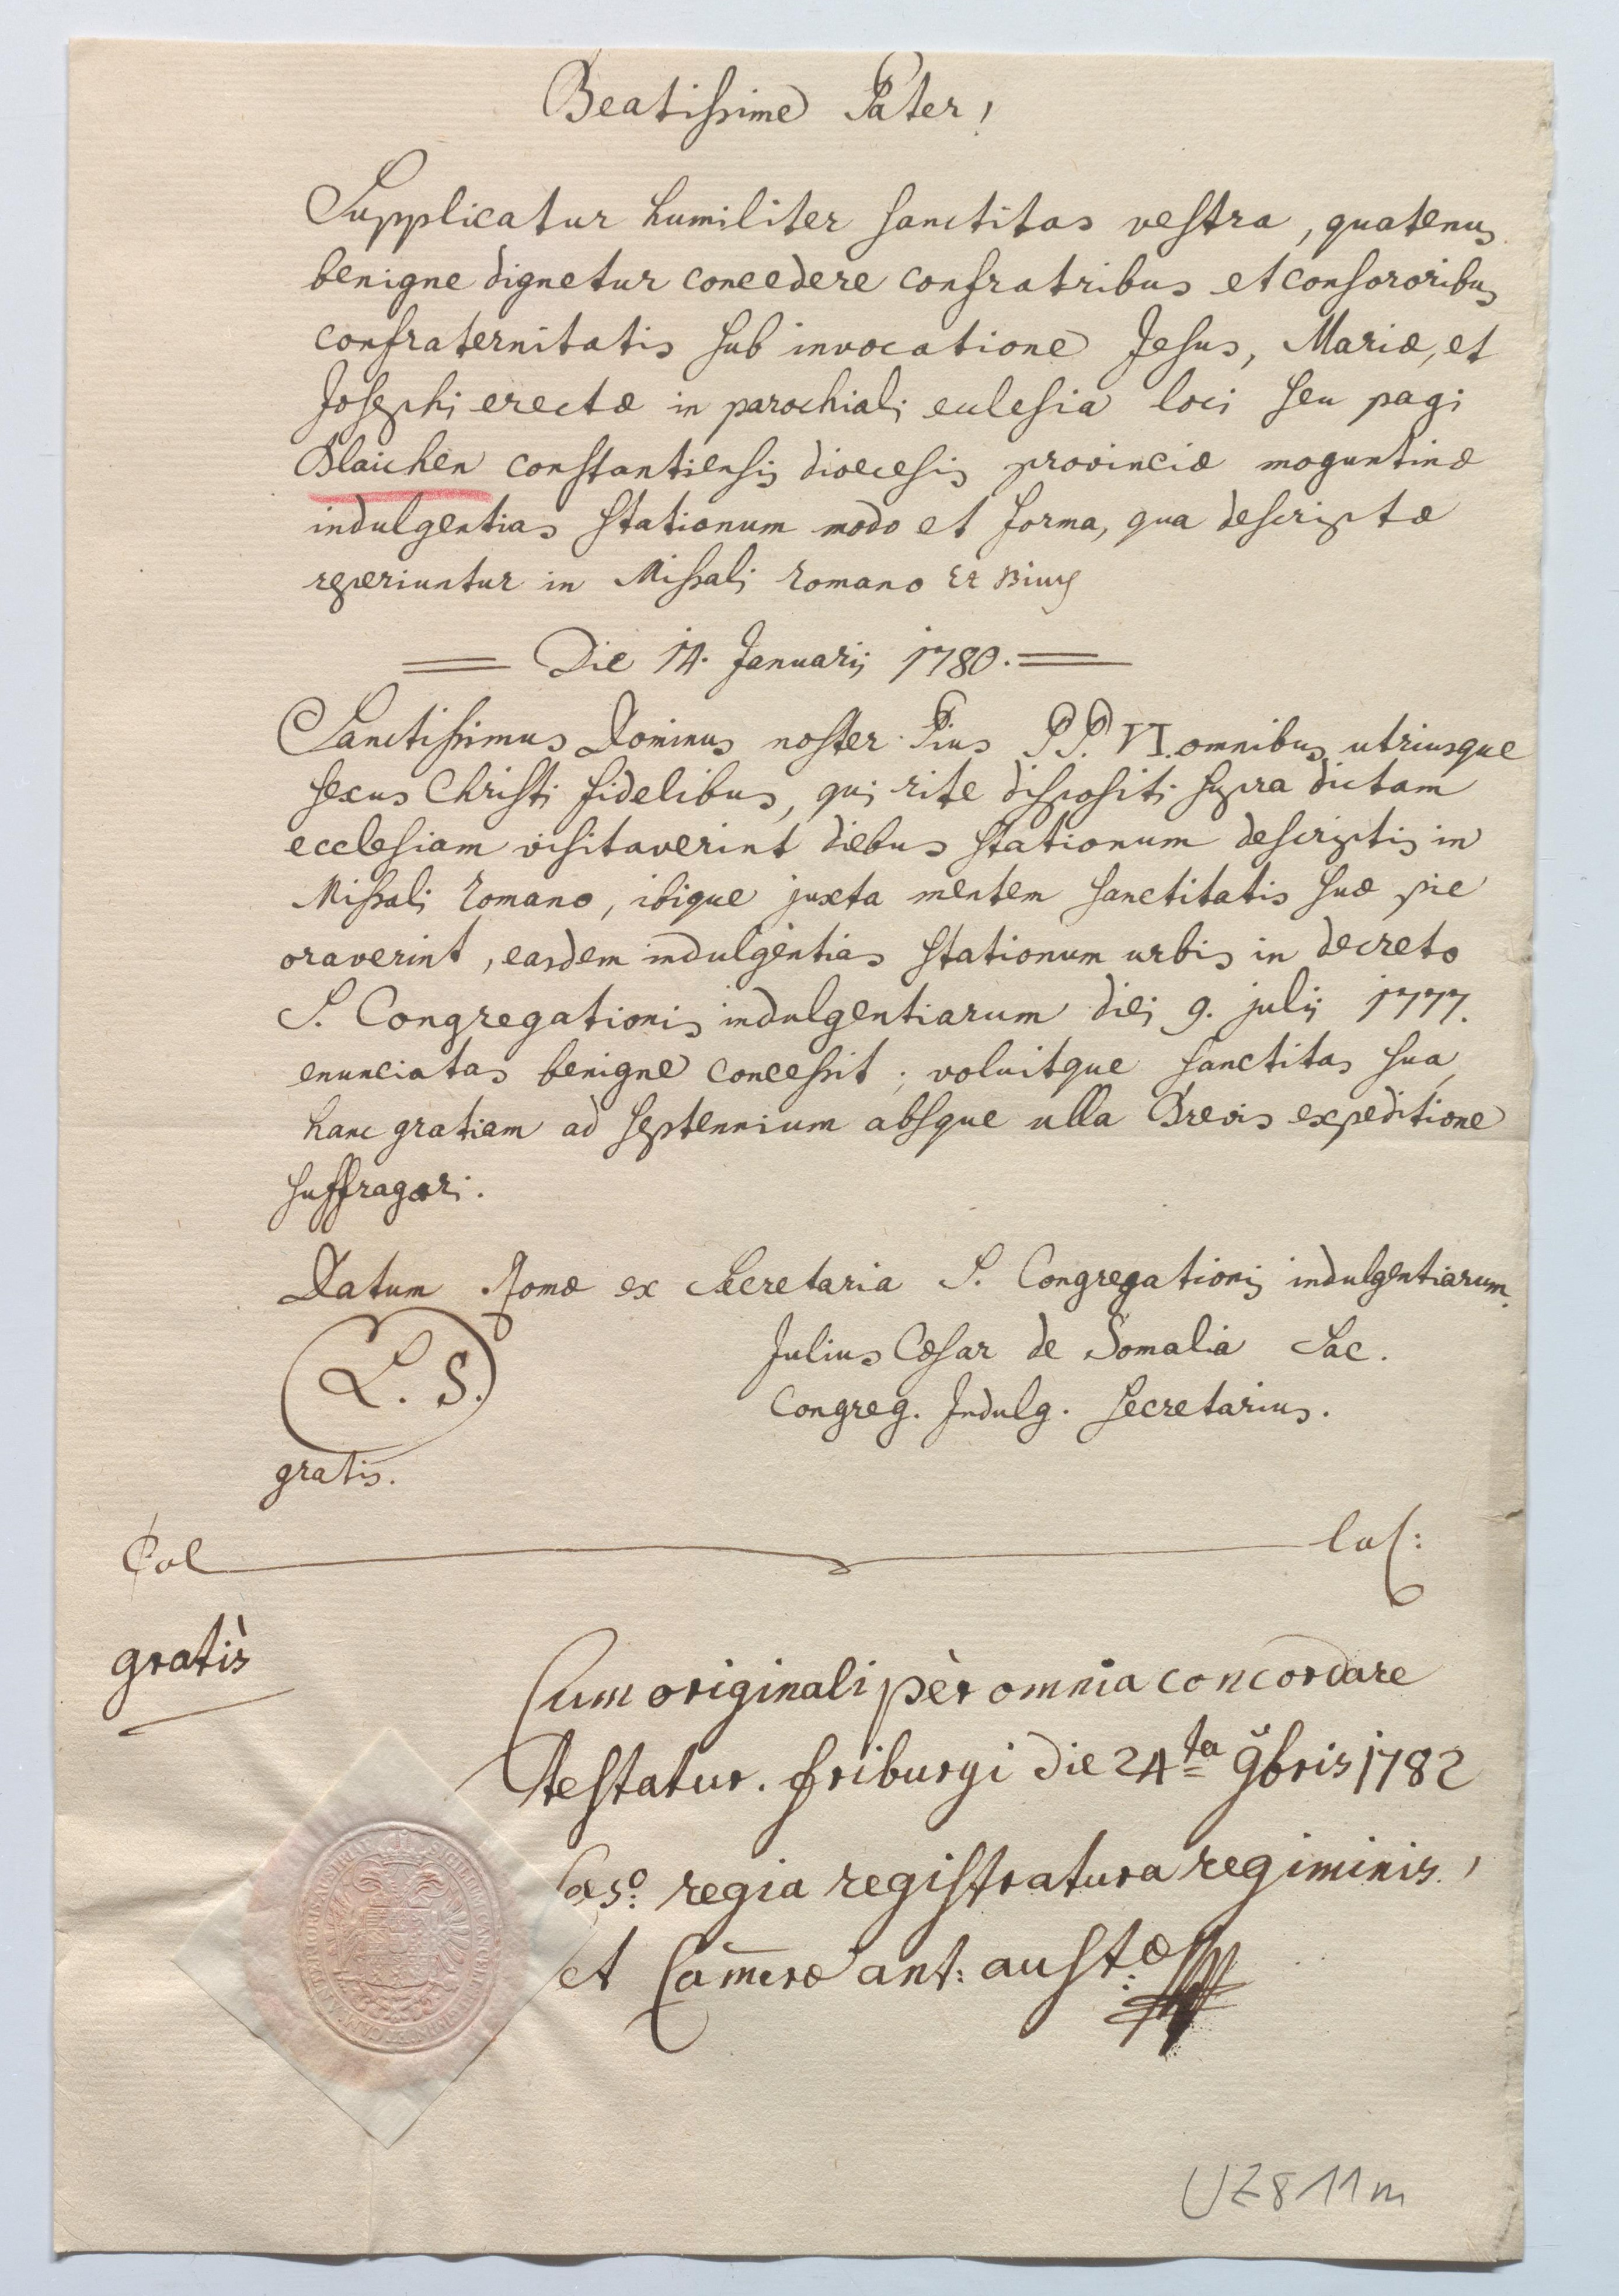 Beatissime Pater!
Supplicatur humiliter sanctitas vestra, quatenus
benigne dignetur concedere confratribus et consororibus
confraternitatis sub invocatione Jesus, Mariæ, et
Josephi erectæ in parochiali eclesia loci seu pagi
Blaichen constantiensis dioecesis provinciæ moguntinæ
indulgentias stationum modo et forma, qua descriptæ
reperiuntur in Missali romano
Die 14. Januarij 1780.
Sanctissimus Dominus noster Pius P.P. VI. omnibus utriusque
sexus Christi fidelibus, qui rite dispositi supra dictam
ecclesiam visitaverint diebus stationum descriptis in
Missali romano, ibique juxta mentem sanctitatis suæ pie
oraverint, easdem indulgentias stationum urbis in decreto
S. Congregationis indulgentiarum diei 9. julij 1777.
enunciatas benigne concessit; voluitque sanctitas sua
hanc gratiam ad septennium absque ulla Brevis expeditione
suffragari.
Datum Romæ ex Secretaria S. Congregationis indulgentiarum.
L. S.
Julius Cæsar de Somalia Sac.
Congreg. Indulg. Secretarius.
gratis.
Col lat:
gratis
Cum originali per omnia concordare
testatur. friburgi die 24ta 9bris 1782
Cæso. regia registratura regiminis,
et Cameræ ant: aust:æ
UZ811m